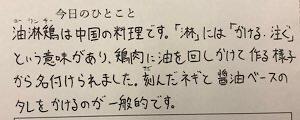 今日のひとこと
ユーリンチー
油淋鶏は中国の料理です。「淋」には「かける・注ぐ」
という意味があり、鶏肉に油を回しかけて作る様子
から名付けられました。刻んだネギと醤油ベースの
タレをかけるのが一般的です。